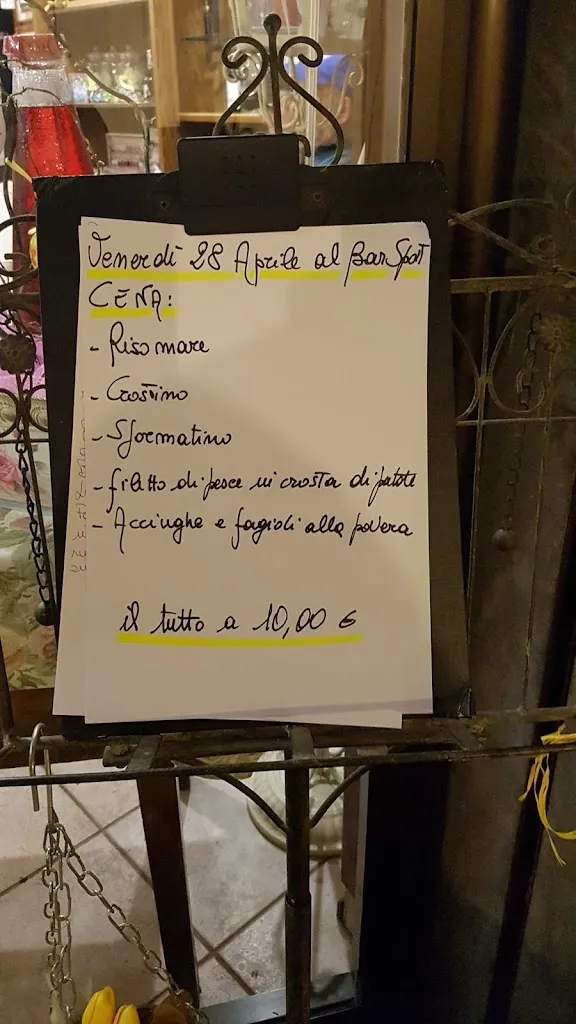 Venerdì 28 Aprile al Bar Sport
CENA:
- Riso mare
- Crostino
- Sformatino
- filetto di pesce in crosta di patate
- Acciughe e fagioli alla povera
il tutto a 10,00 €